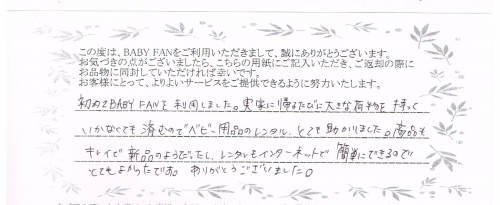 この度は、BABY FANをご利用いただきまして、誠にありがとうございます。
お気づきの点がございましたら、こちらの用紙にご記入いただき、ご返却の際に
お品物に同封していただければ幸いです。
お客様にとって、よりよいサービスをご提供できるように努力いたします。
初めてBABY FANを利用しました。実家に帰るたびに大きな荷物を持って
いかなくても済むのでベビー用品のレンタル、とても助かりました。商品も
キレイで新品のようでしたし、レンタルもインターネットで簡単にできるので
とてもよかったです。ありがとうございました。